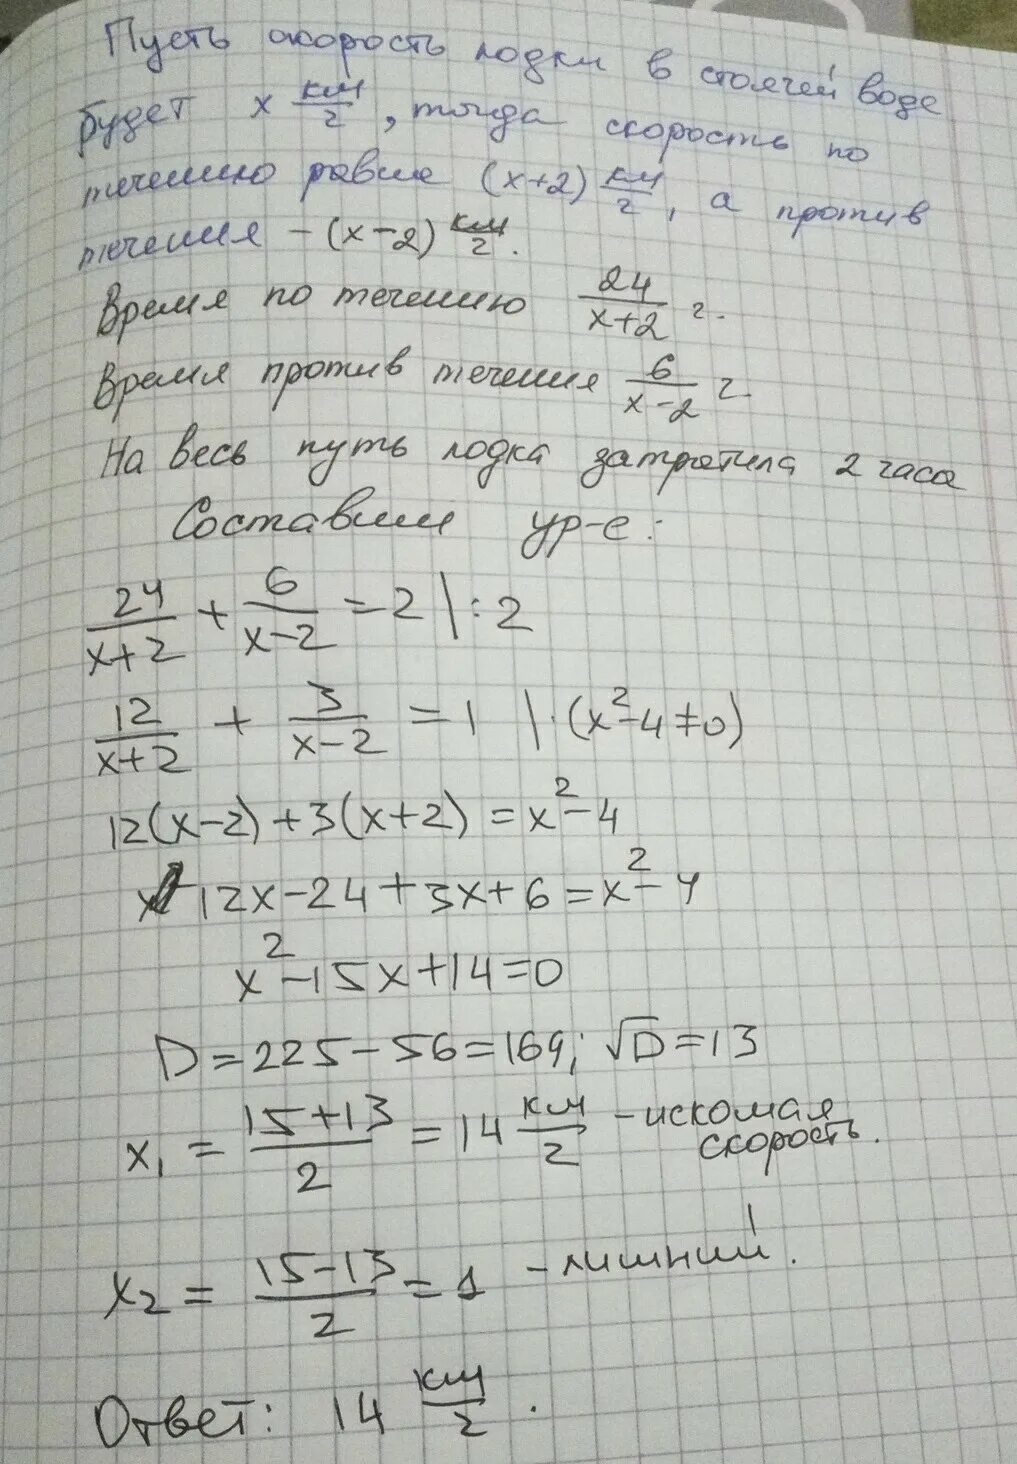 Пусть скорость лодки в стоячей воде
будет x км/г, тогда скорость по
течению равна (x+2) км/г, а против
течения - (x-2) км/г.
Время по течению 24/(x+2) г.
Время против течения 6/(x-2) г.
На весь путь лодка затратила 2 часа
Составим ур-е:
24/(x+2) + 6/(x-2) = 2 | :2
12/(x+2) + 3/(x-2) = 1 | ·(x²-4≠0)
12(x-2)+3(x+2)=x²-4
12x-24+3x+6=x²-4
x²-15x+14=0
D=225-56=169; √D=13
x₁ = (15+13)/2 = 14 км/г - искомая
скорость.
x₂ = (15-13)/2 = 1 - лишний.
Ответ: 14 км/г.